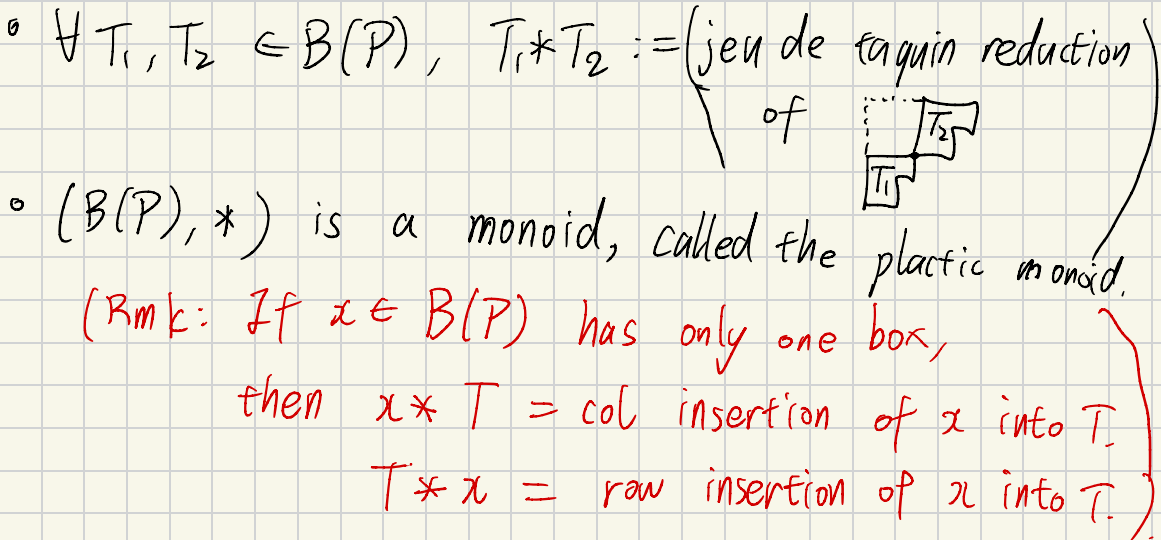 ∘ ∀ T₁, T₂ ∈ B(P), T₁ * T₂ := (jeu de taquin reduction
of T₂
T₁ )
∘ (B(P), *) is a monoid, called the plactic monoid.
(Rmk: If x ∈ B(P) has only one box,
then x * T = col insertion of x into T.
T * x = row insertion of x into T.)